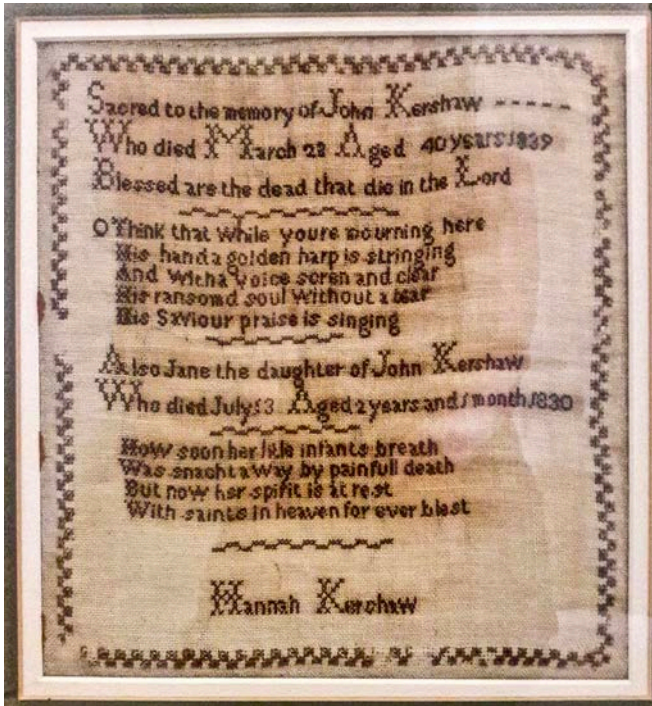 Sacred to the memory of John Kershaw -----
Who died March 28 Aged 40 years 1839
Blessed are the dead that die in the Lord
O Think that while youre mourning here
His hand a golden harp is stringing
And with a voice seren and clear
His ransomd soul without a tear
His Saviour praise is singing
Also Jane the daughter of John Kershaw
Who died July 13 Aged 2 years and 1 month 1830
How soon her litle infants breath
Was snacht away by painfull death
But now her spirit is at rest
With saints in heaven for ever blest
Hannah Kershaw